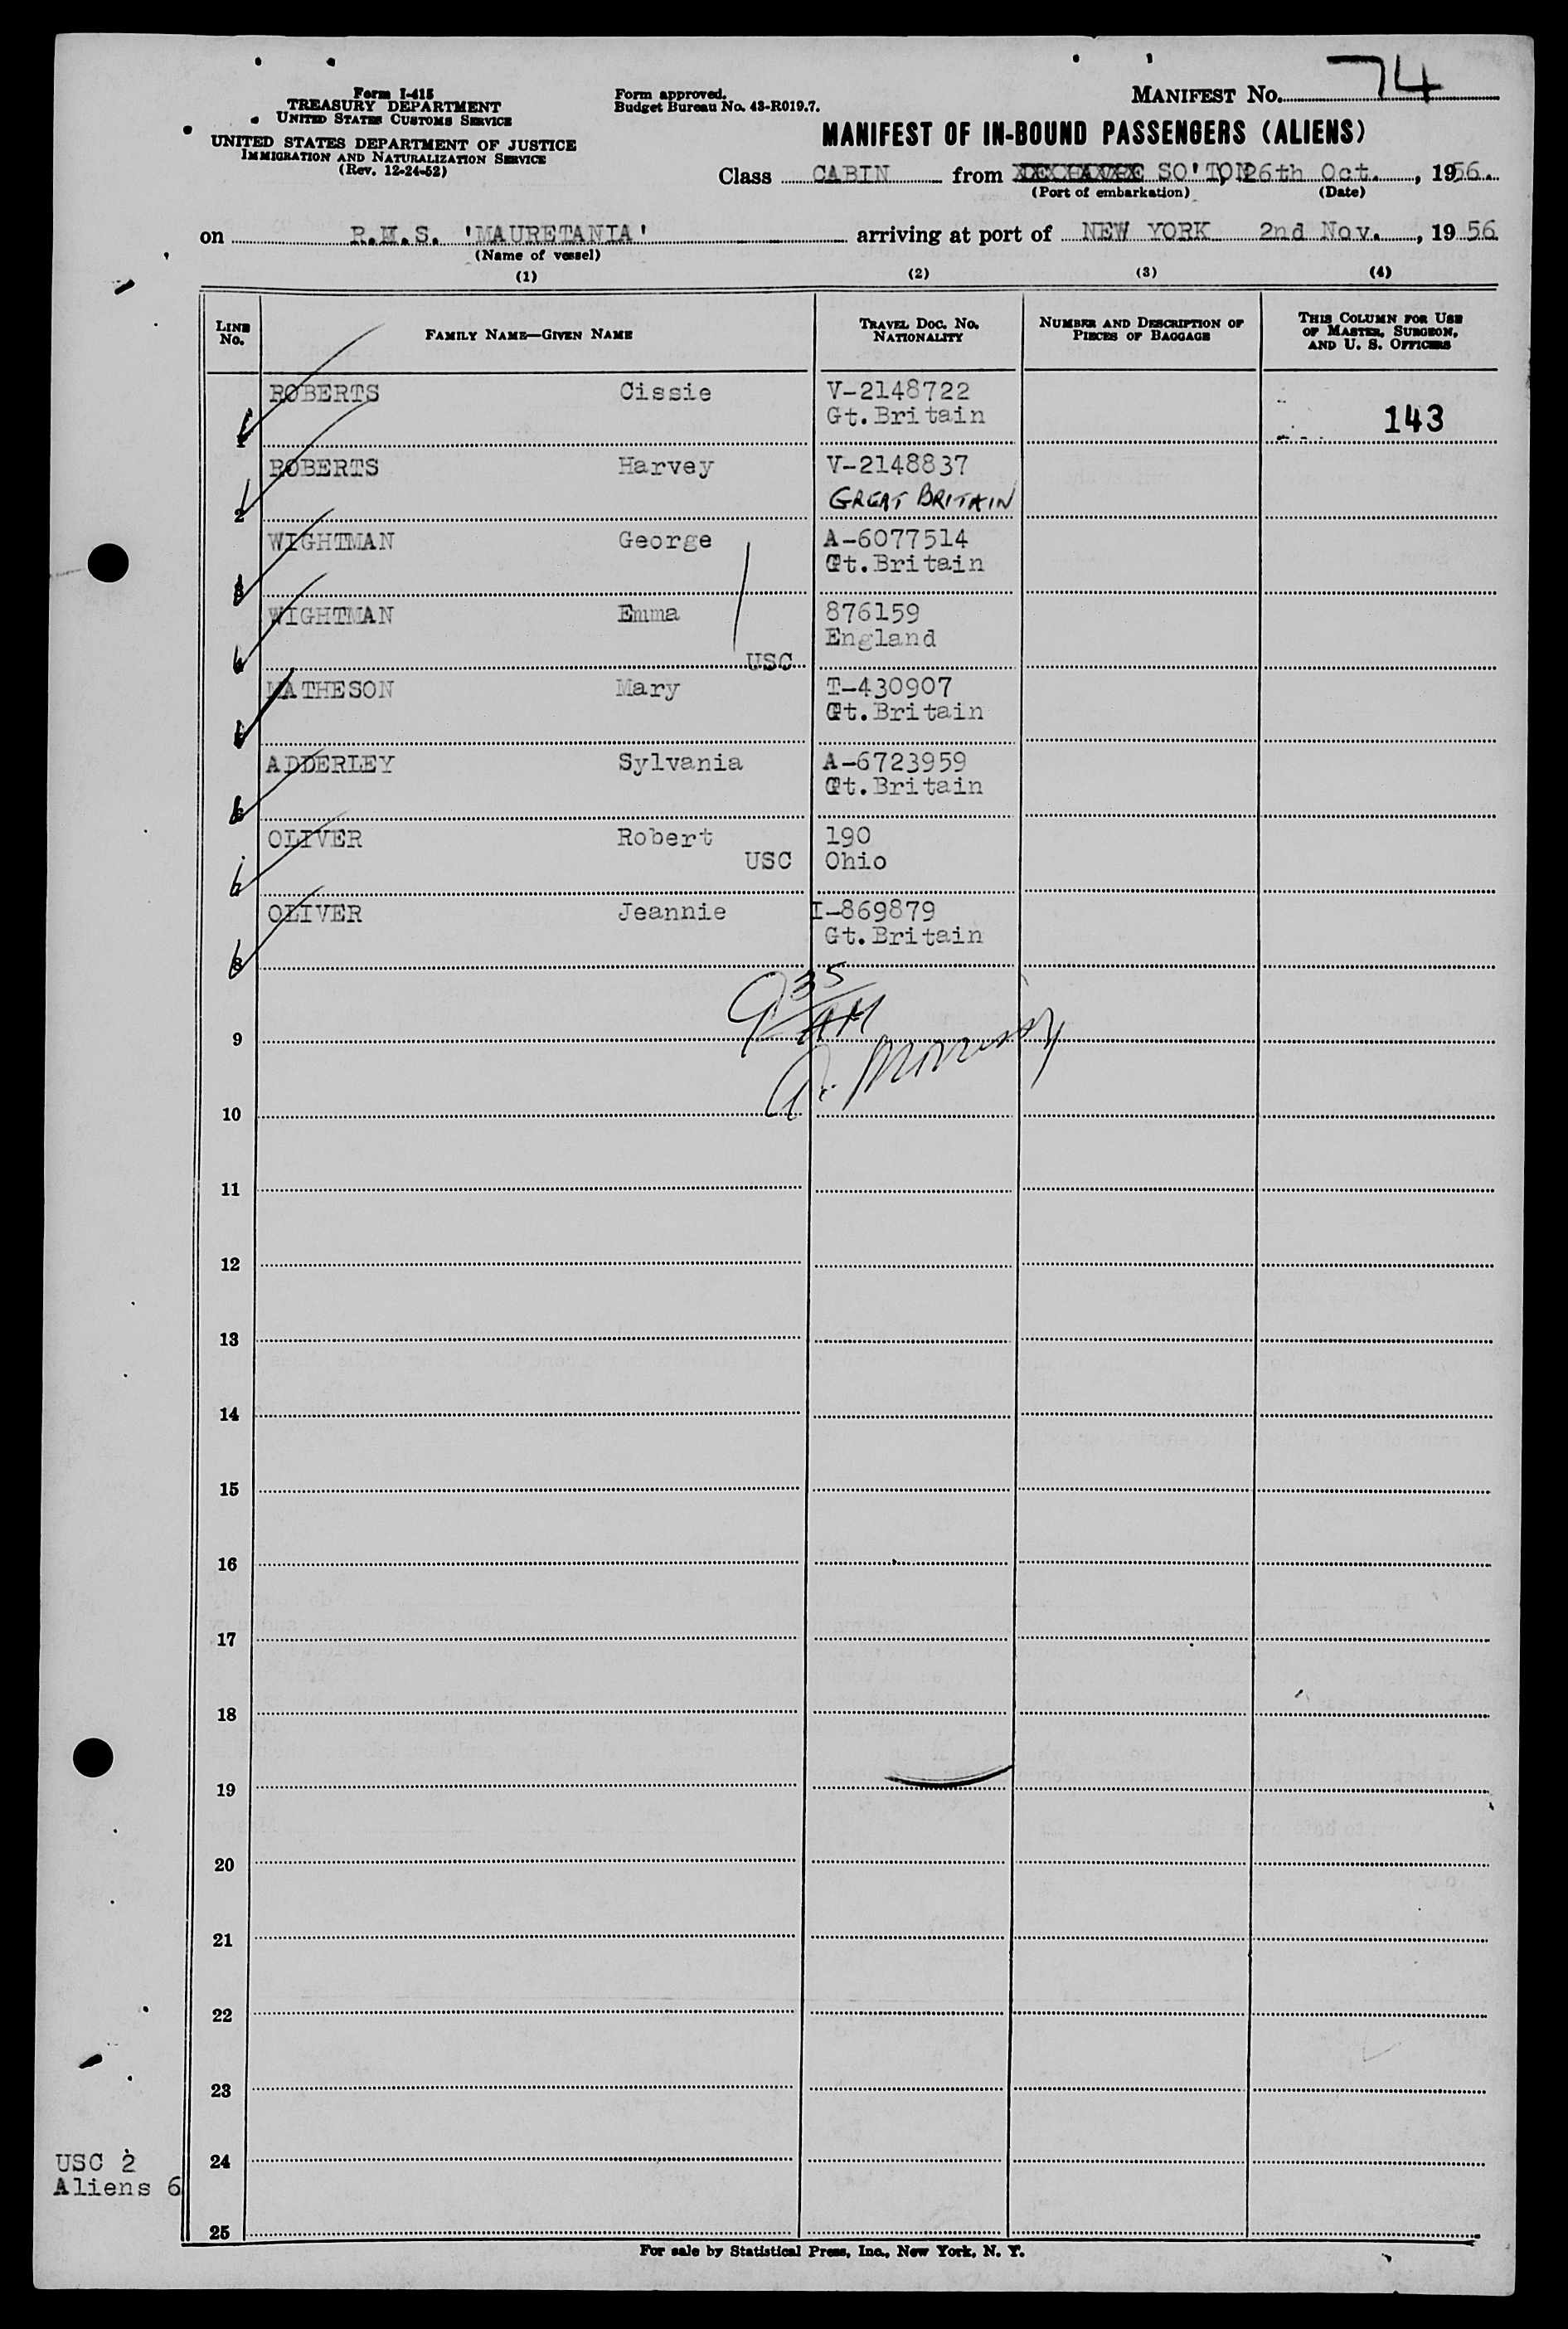 Form I-415
TREASURY DEPARTMENT
UNITED STATES CUSTOMS SERVICE
UNITED STATES DEPARTMENT OF JUSTICE
IMMIGRATION AND NATURALIZATION SERVICE
(Rev. 12-24-52)
Form approved.
Budget Bureau No. 43-R019.7.
MANIFEST No. 74
MANIFEST OF IN-BOUND PASSENGERS (ALIENS)
Class CABIN from SO'TON, 26th Oct., 1956.
(Port of embarkation) (Date)
on R.M.S. 'MAURETANIA' arriving at port of NEW YORK 2nd Nov., 1956
(Name of vessel)
(1) (2) (3) (4)
LINE No. FAMILY NAME—GIVEN NAME TRAVEL DOC. No. NATIONALITY NUMBER AND DESCRIPTION OF PIECES OF BAGGAGE THIS COLUMN FOR USE OF MASTER, SURGEON, AND U. S. OFFICERS
ROBERTS Cissie V-2148722
1 Gt.Britain 143
ROBERTS Harvey V-2148837
2 GREAT BRITAIN
WIGHTMAN George A-6077514
3 Gt.Britain
WIGHTMAN Emma 876159
4 USC England
MATHESON Mary T-430907
5 Gt.Britain
ADDERLEY Sylvania A-6723959
6 Gt.Britain
OLIVER Robert 190
7 USC Ohio
OLIVER Jeannie I-869879
8 Gt.Britain
9 35 AM
9
10
11
12
13
14
15
16
17
18
19
20
21
22
23
24
USC 2
Aliens 6
25
For sale by Statistical Press, Inc., New York, N. Y.